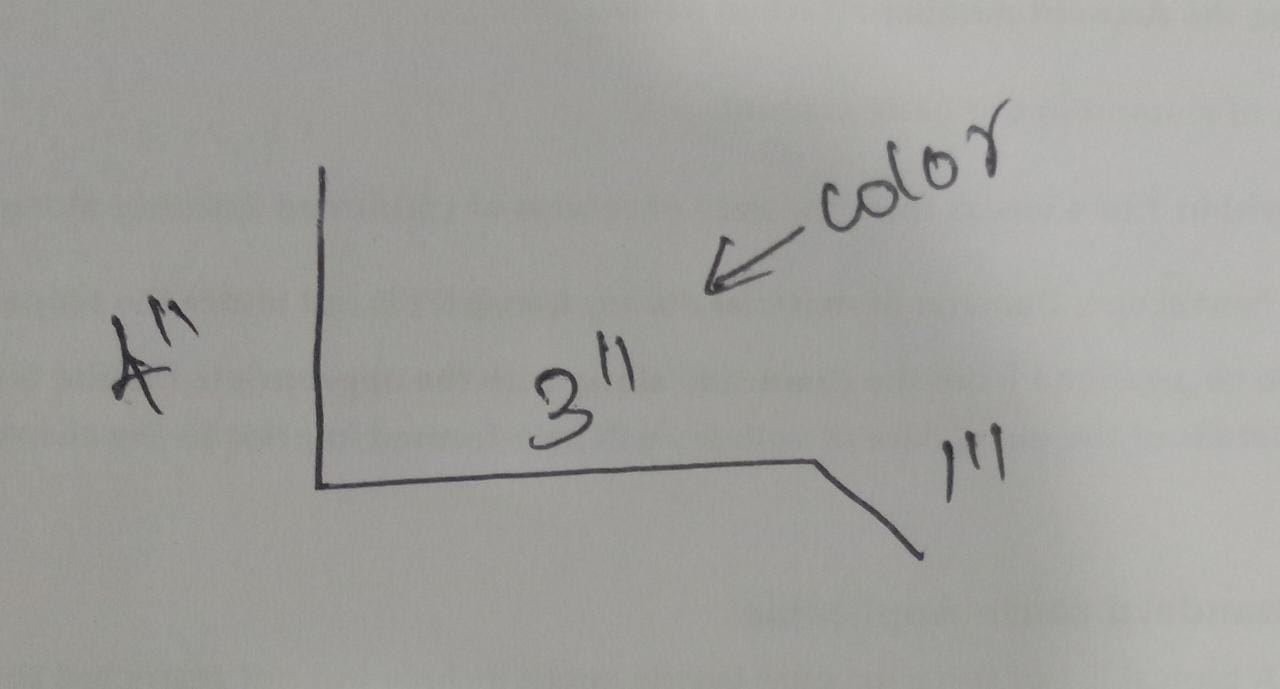 color
A"
3"
1"